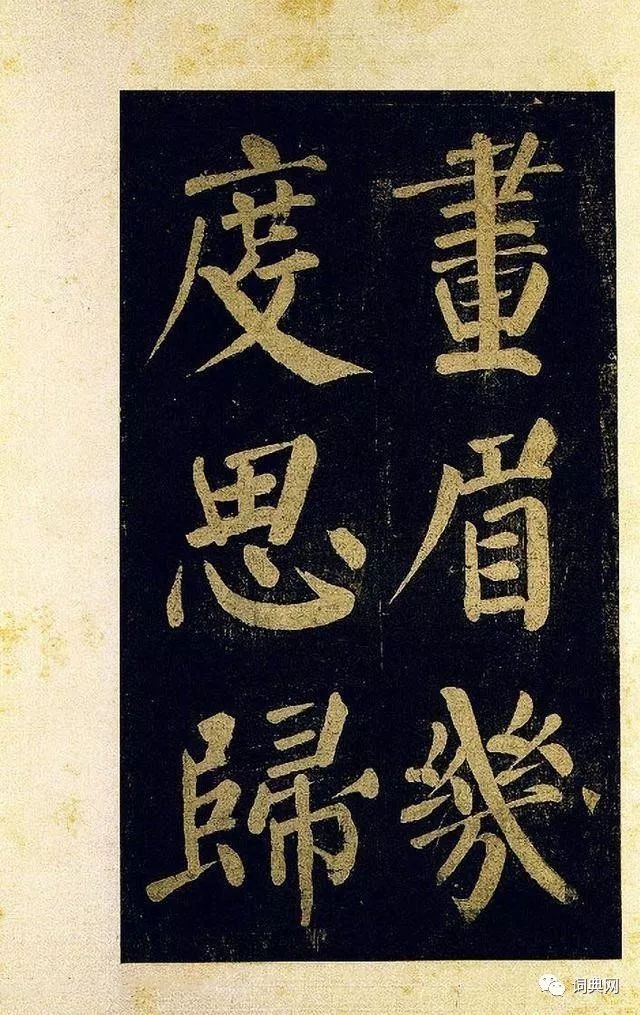 畫眉幾
度思歸
词典网